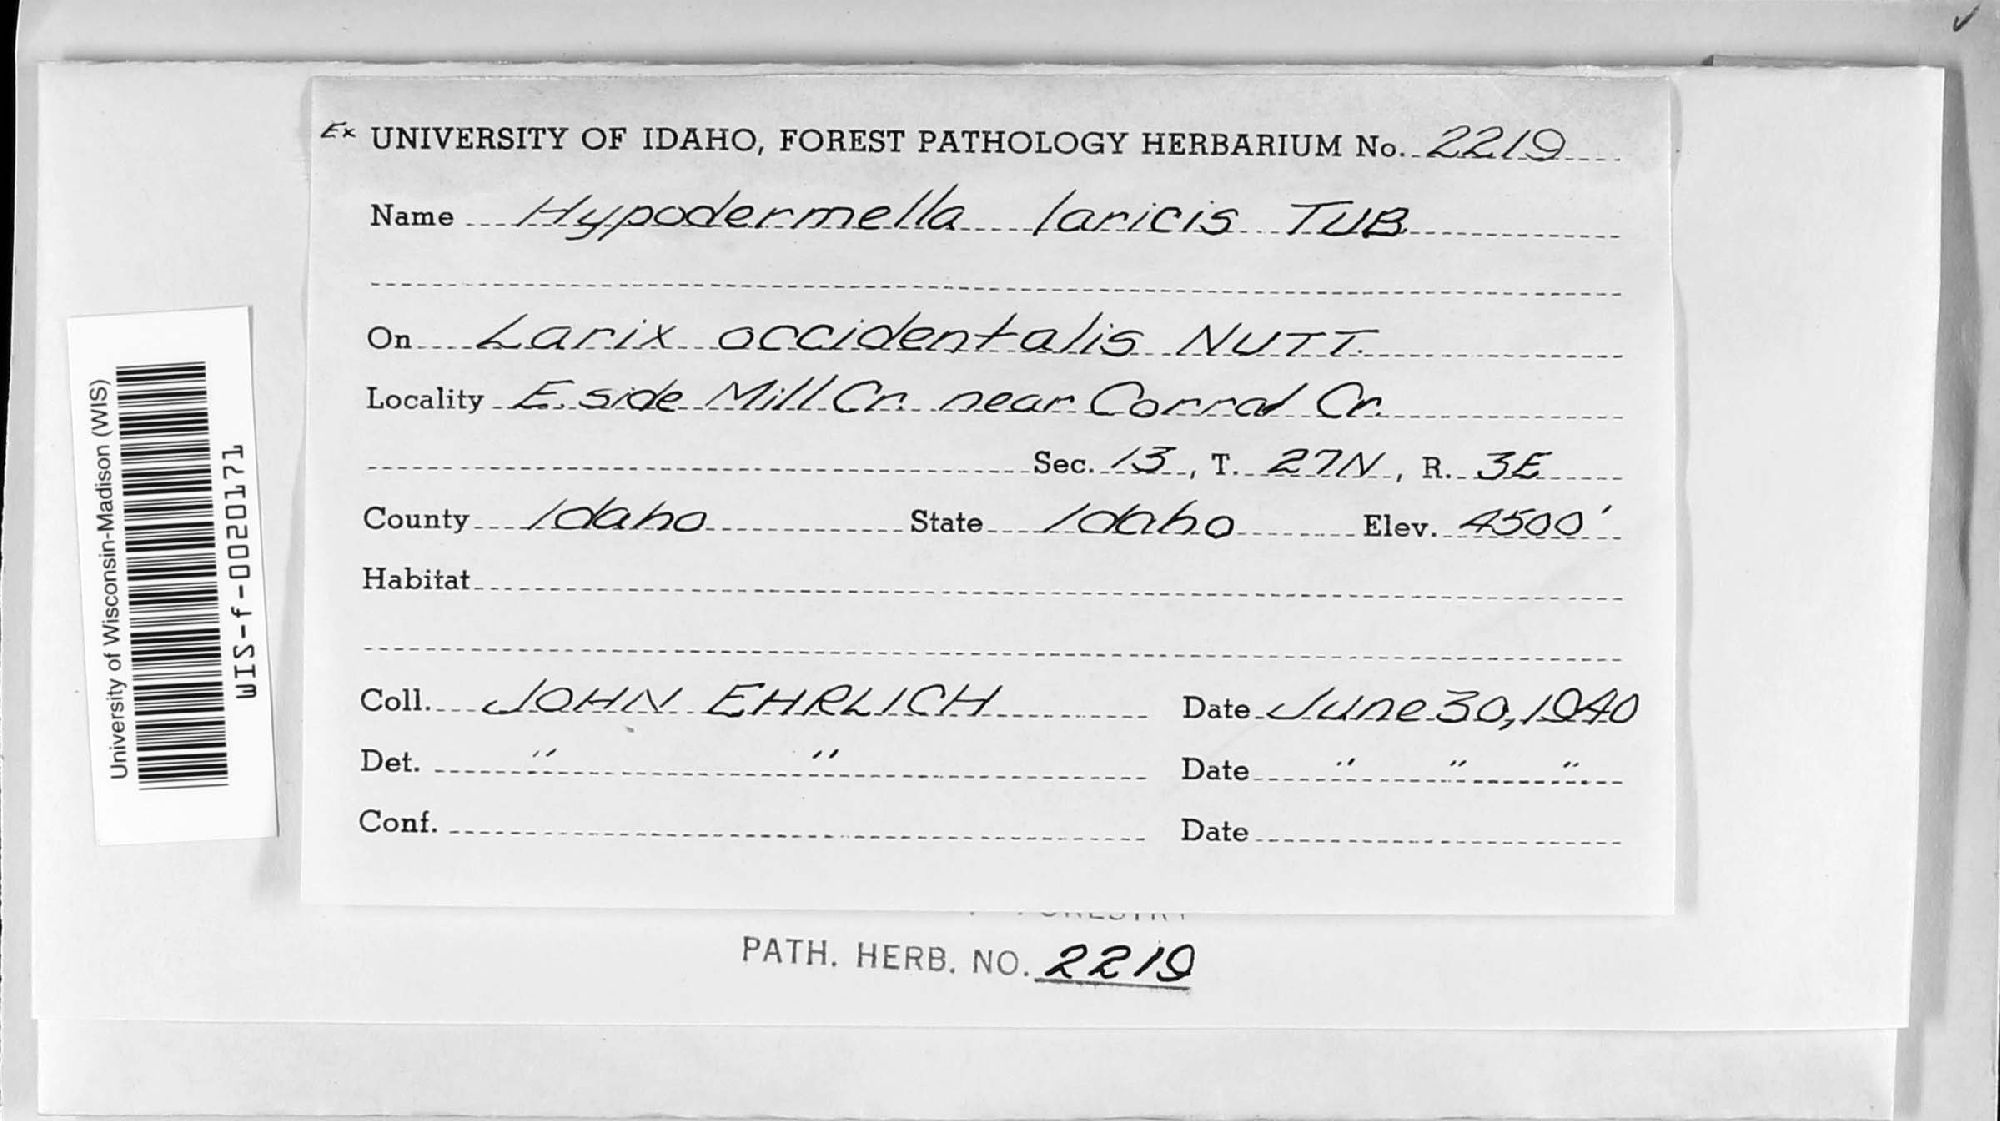 Ex UNIVERSITY OF IDAHO, FOREST PATHOLOGY HERBARIUM No. 2219
Name Hypodermella laricis TUB.
On Larix occidentalis NUTT.
Locality E. side Mill Cr. near Corral Cr.
Sec. 13, T. 27N, R. 3E
County Idaho State Idaho Elev. 4500'
Habitat
Coll. JOHN EHRLICH Date June 30, 1940
Det. " " Date " " "
Conf. Date
PATH. HERB. NO. 2219
University of Wisconsin-Madison (WIS)
WIS-f-0020171